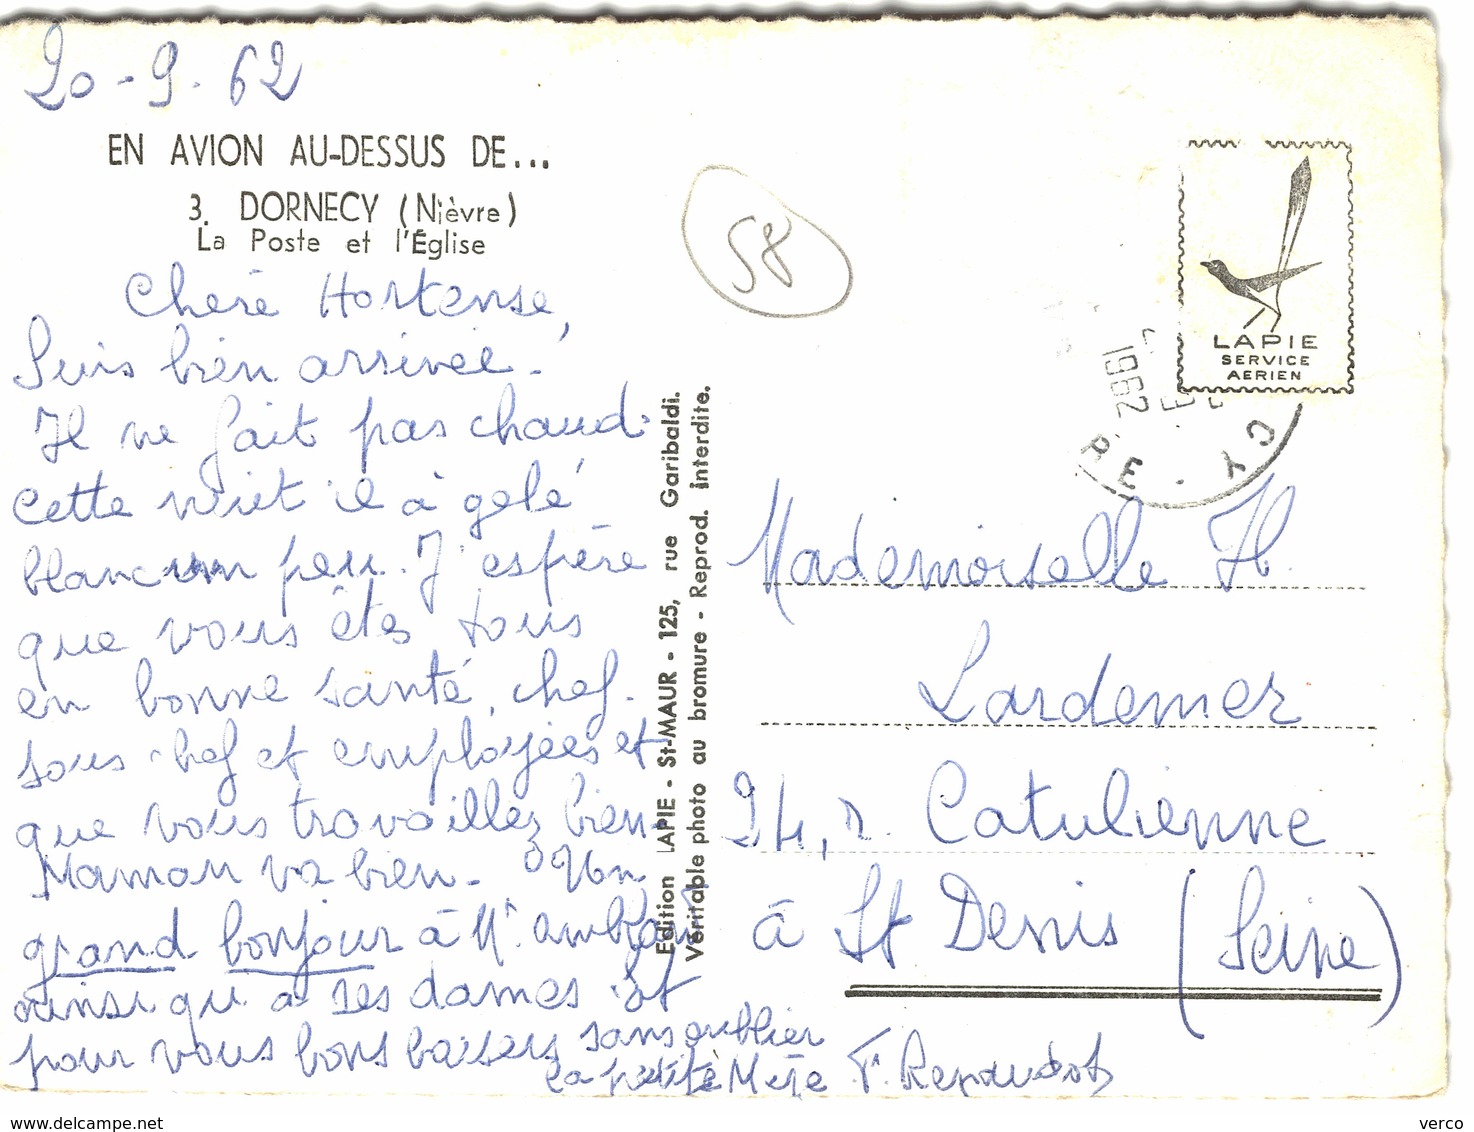 20-9-62
EN AVION AU-DESSUS DE...
3. DORNECY (Nièvre)
La Poste et l'Église
58
Chère Hortense,
Suis bien arrivée.
Il ne fait pas chaud.
cette nuit il a gelé
blanc un peu. J'espère
que vous êtes tous
en bonne santé, chef.
sous-chef et employées et
que vous travaillez bien.
Maman va bien. Un
grand bonjour à Mr
ainsi qu'à ses dames et
pour vous bons baisers sans oublier
la petite Mère F. Renaudot
Edition LAPIE - St-MAUR - 125, rue Garibaldi.
Véritable photo au bromure - Reprod. interdite.
LAPIE
SERVICE
AERIEN
1962
CY - RE
Mademoiselle H.
Lardemer
24, r. Catulienne
à St Denis (Seine)
www.delcampe.net
verco